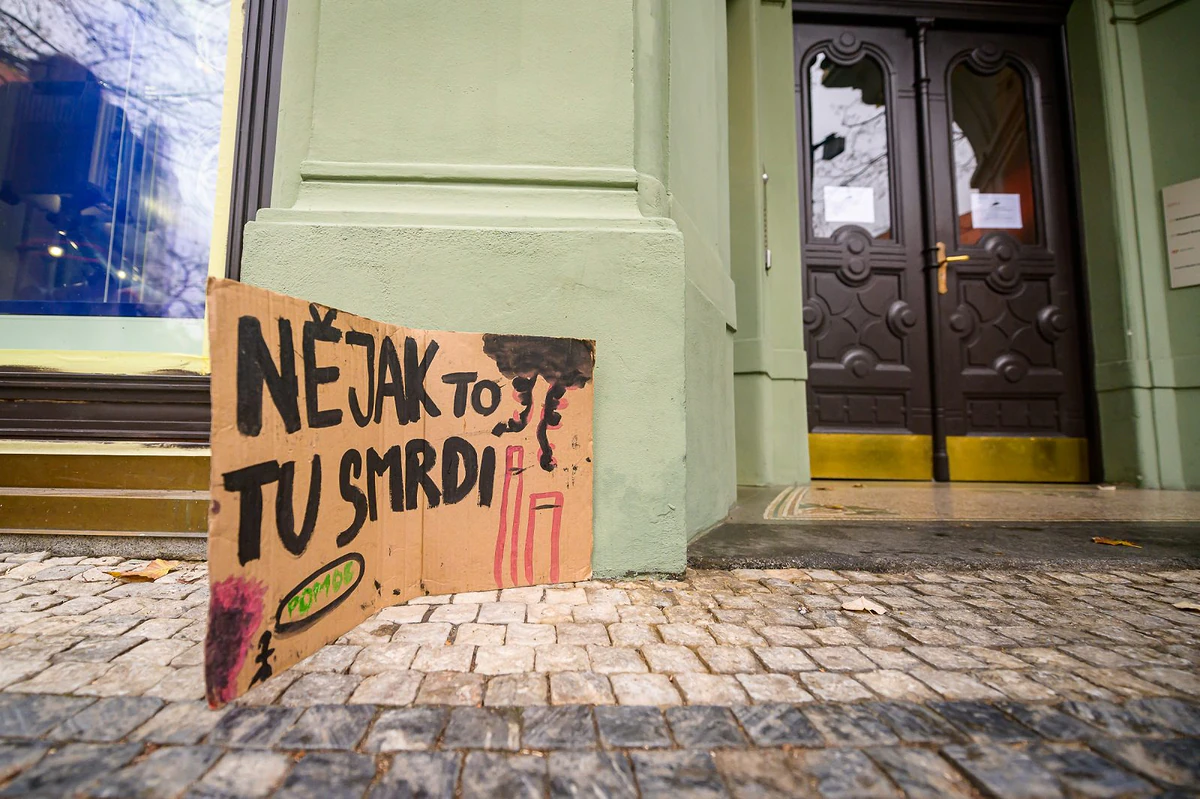 NĚJAK TO
TU SMRDI
POMOC